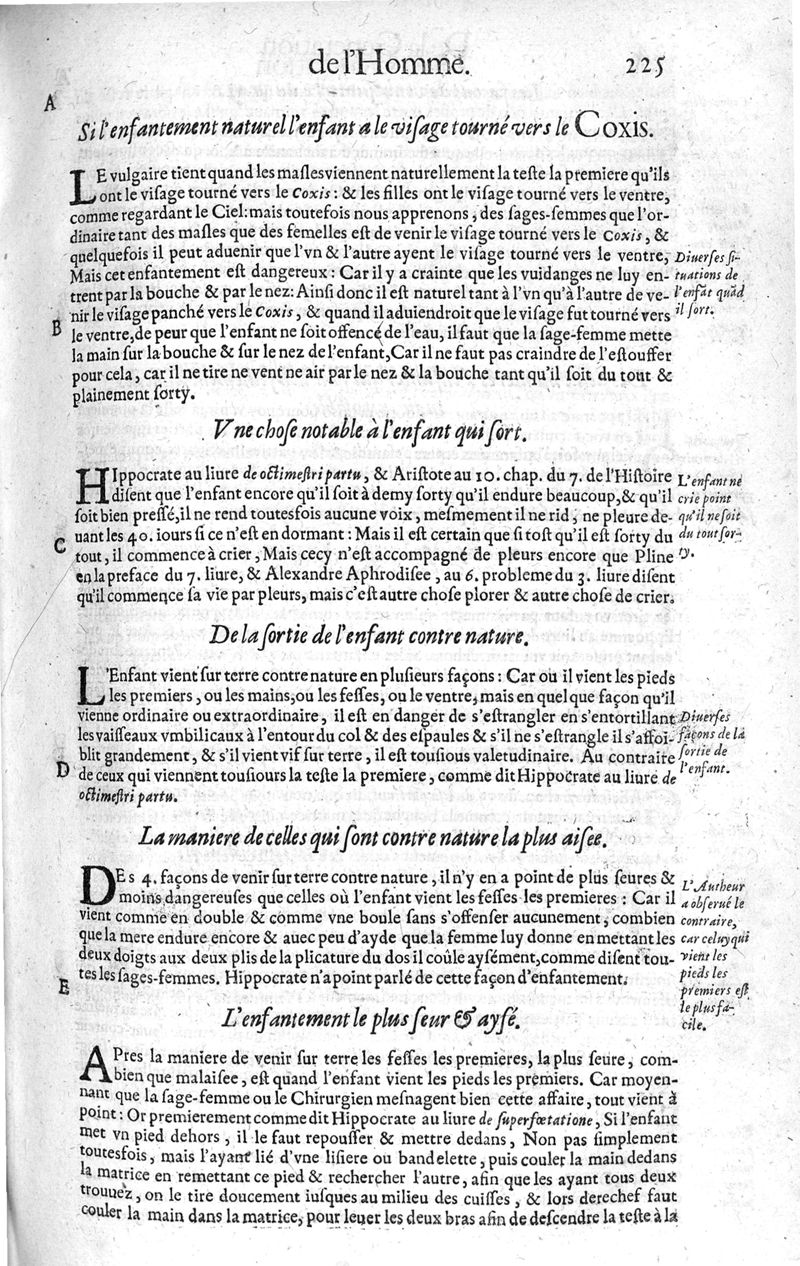 de l'Homme. 225
A
Si l'enfantement naturel l'enfant a le viſage tourné vers le Coxis.
LE vulgaire tient quand les maſles viennent naturellement la teſte la premiere qu'ils
ont le viſage tourné vers le Coxis : & les filles ont le viſage tourné vers le ventre,
comme regardant le Ciel: mais toutefois nous apprenons, des ſages-femmes que l'or-
dinaire tant des maſles que des femelles eſt de venir le viſage tourné vers le Coxis, &
quelquefois il peut aduenir que l'vn & l'autre ayent le viſage tourné vers le ventre,
Mais cet enfantement eſt dangereux : Car il y a crainte que les vuidanges ne luy en-
trent par la bouche & par le nez: Ainſi donc il eſt naturel tant à l'vn qu'à l'autre de ve-
nir le viſage panché vers le Coxis, & quand il aduiendroit que le viſage fut tourné vers
le ventre, de peur que l'enfant ne ſoit offencé de l'eau, il faut que la ſage-femme mette
la main ſur la bouche & ſur le nez de l'enfant, Car il ne faut pas craindre de l'eſtouffer
pour cela, car il ne tire ne vent ne air par le nez & la bouche tant qu'il ſoit du tout &
plainement ſorty.
Diuerſes ſi-
tuations de
l'enfāt quād
il ſort.
B
Vne choſe notable à l'enfant qui ſort.
HIppocrate au liure de octimeſtri partu, & Ariſtote au 10. chap. du 7. de l'Hiſtoire
diſent que l'enfant encore qu'il ſoit à demy ſorty qu'il endure beaucoup, & qu'il
ſoit bien preſſé, il ne rend toutesfois aucune voix, meſmement il ne rid, ne pleure de-
uant les 40. iours ſi ce n'eſt en dormant : Mais il eſt certain que ſi toſt qu'il eſt ſorty du
tout, il commence à crier, Mais cecy n'eſt accompagné de pleurs encore que Pline
en la preface du 7. liure, & Alexandre Aphrodiſee, au 6. probleme du 3. liure diſent
qu'il commence ſa vie par pleurs, mais c'eſt autre choſe plorer & autre choſe de crier.
L'enfant ne
crie point
qu'il ne ſoit
du tout ſor-
ty.
C
De la ſortie de l'enfant contre nature.
L'Enfant vient ſur terre contre nature en pluſieurs façons : Car ou il vient les pieds
les premiers, ou les mains, ou les feſſes, ou le ventre, mais en quel que façon qu'il
vienne ordinaire ou extraordinaire, il eſt en danger de s'eſtrangler en s'entortillant
les vaiſſeaux vmbilicaux à l'entour du col & des eſpaules & s'il ne s'eſtrangle il s'affoi-
blit grandement, & s'il vient vif ſur terre, il eſt touſious valetudinaire. Au contraire
de ceux qui viennent touſiours la teſte la premiere, comme dit Hippocrate au liure de
octimeſtri partu.
Diuerſes
façons de la
ſortie de
l'enfant.
D
La maniere de celles qui ſont contre nature la plus aiſee.
DEs 4. façons de venir ſur terre contre nature, il n'y en a point de plus ſeures &
moins dangereuſes que celles où l'enfant vient les feſſes les premieres : Car il
vient comme en double & comme vne boule ſans s'offenſer aucunement, combien
que la mere endure encore & auec peu d'ayde que la femme luy donne en mettant les
deux doigts aux deux plis de la plicature du dos il coûle ayſément, comme diſent tou-
tes les ſages-femmes. Hippocrate n'a point parlé de cette façon d'enfantement.
L'Autheur
a obſerué le
contraire,
car celuy qui
vient les
pieds les
premiers eſt
le plus fa-
cile.
E
L'enfantement le plus ſeur & ayſé.
APres la maniere de venir ſur terre les feſſes les premieres, la plus ſeure, com-
bien que malaiſee, eſt quand l'enfant vient les pieds les premiers. Car moyen-
nant que la ſage-femme ou le Chirurgien meſnagent bien cette affaire, tout vient à
point : Or premierement comme dit Hippocrate au liure de ſuperfœtatione, Si l'enfant
met vn pied dehors, il le faut repouſſer & mettre dedans, Non pas ſimplement
toutesfois, mais l'ayant lié d'vne liſiere ou bandelette, puis couler la main dedans
la matrice en remettant ce pied & rechercher l'autre, afin que les ayant tous deux
trouuez, on le tire doucement iuſques au milieu des cuiſſes, & lors derechef faut
couler la main dans la matrice, pour leuer les deux bras afin de deſcendre la teſte à la